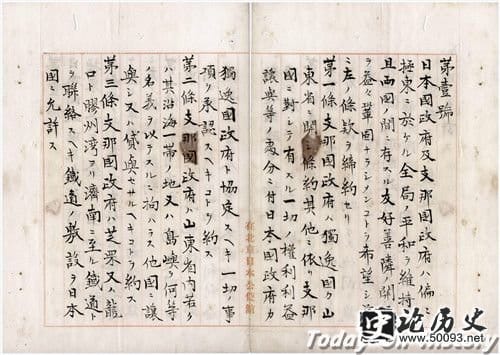 第壹號
日本國政府及支那國政府ハ偏ニ
極東ニ於ケル全局ノ平和ヲ維持シ
且兩國ノ間ニ存スル友好善隣ノ關係
ヲ益々鞏固ナラシメンコトヲ希望シ
ニ左ノ條款ヲ締約セリ
第一條支那國政府ハ獨逸國カ山
東省ニ關シ條約其他ニ依リ支那
國ニ對シテ有スル一切ノ權利利益
讓與等ノ處分ニ付日本國政府カ
在北京日本公使館
獨逸國政府ト協定スヘキ一切ノ事
項ヲ承認スヘキコトヲ約ス
第二條支那國政府ハ山東省内若ク
ハ其沿海一帶ノ地又ハ島嶼ヲ何等
ノ名義ヲ以テスルニ拘ラス他國ニ讓
與シ又ハ貸與セサルヘキコトヲ約ス
第三條支那國政府ハ芝罘又ハ龍
口ト膠州灣ヨリ濟南ニ至ル鐵道ト
ヲ聯絡スヘキ鐵道ノ敷設ヲ日本
國ニ允許ス
Today On History
论历史
www.50093.net